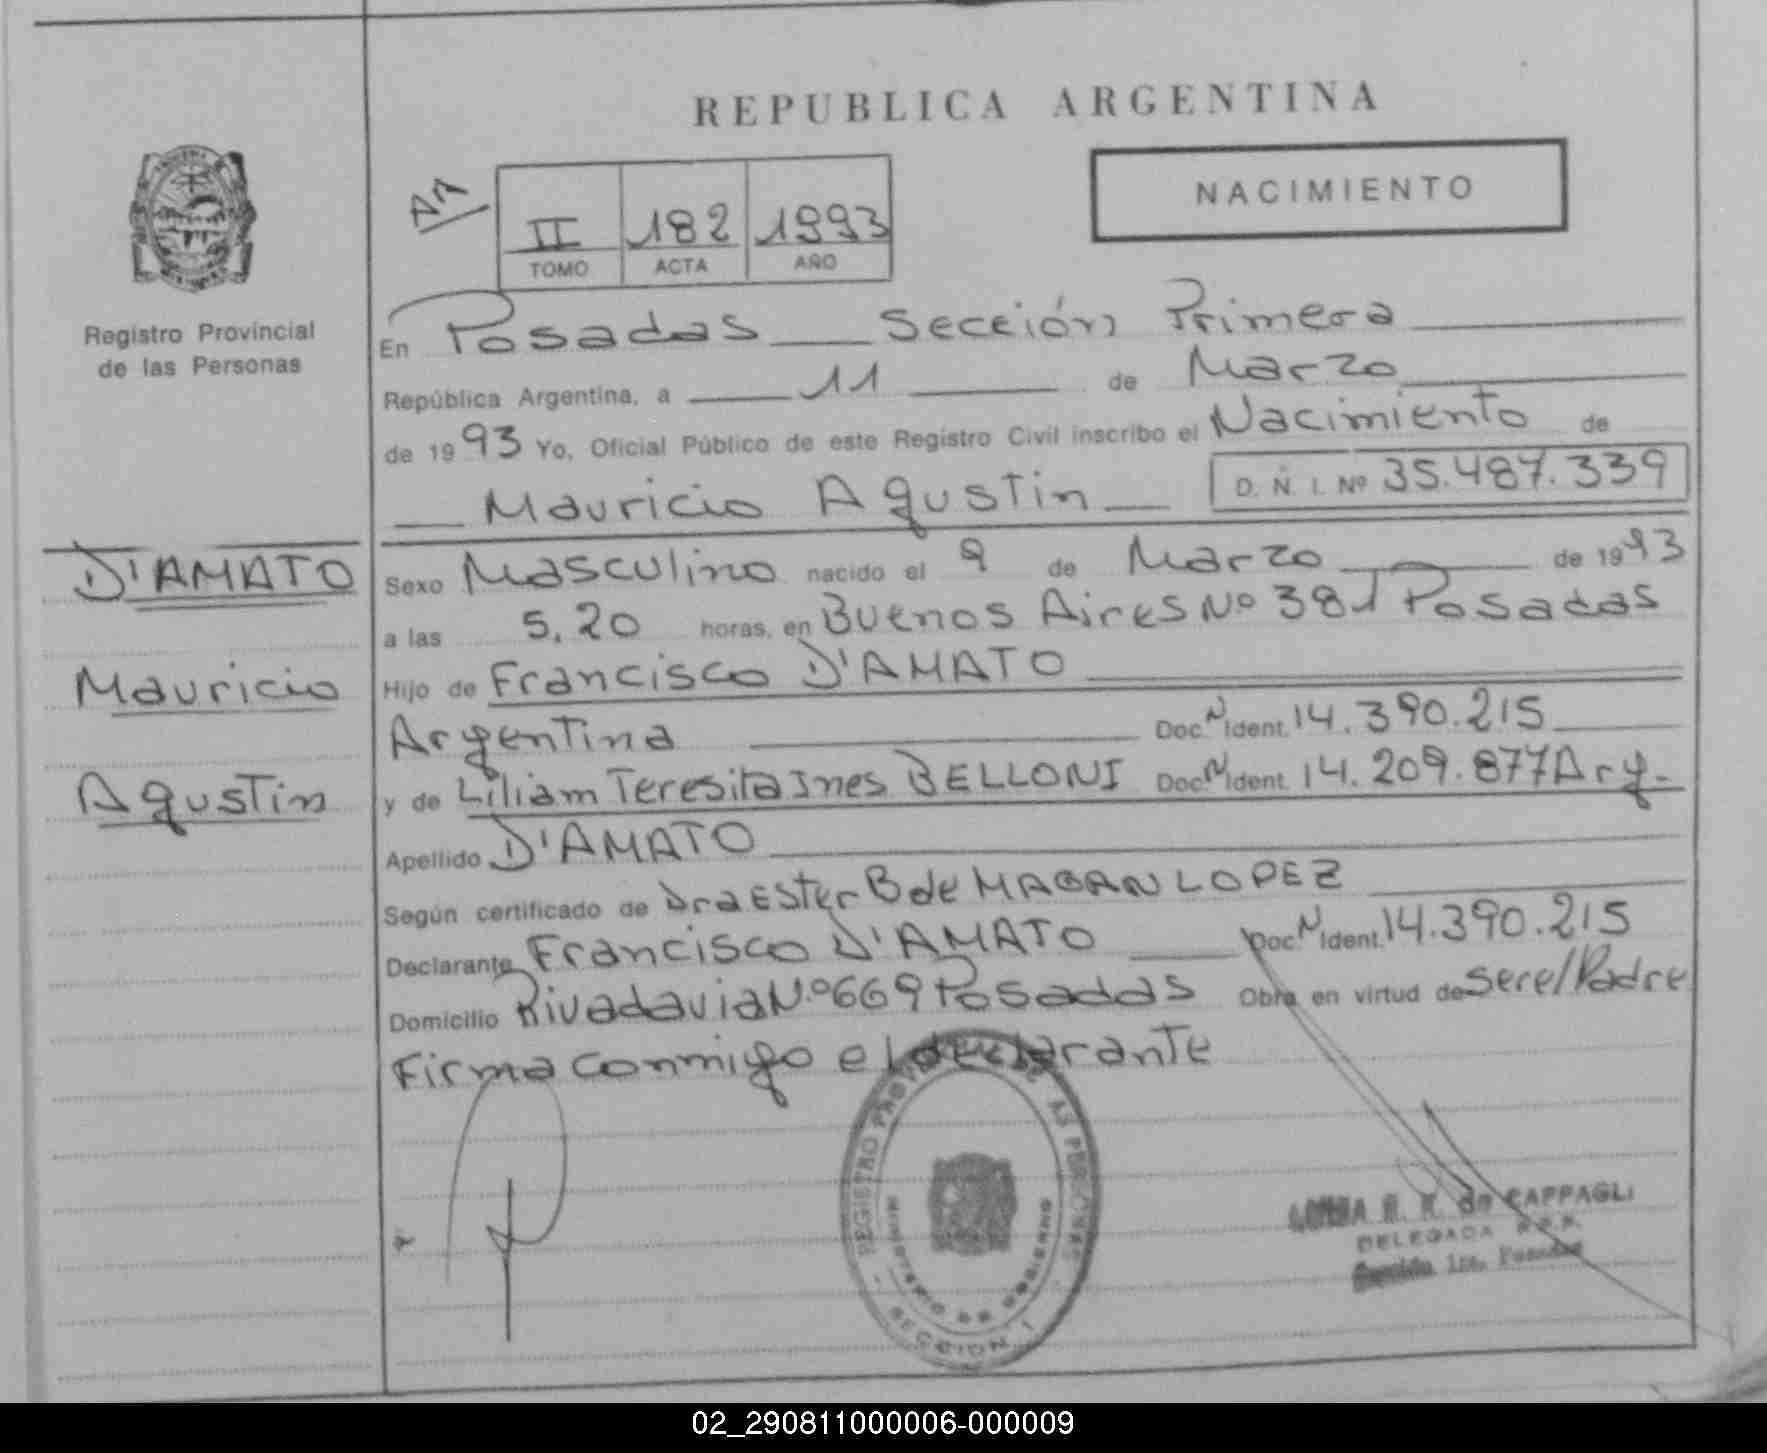 REPUBLICA ARGENTINA
NACIMIENTO
II 182 1993
TOMO ACTA AÑO
Registro Provincial
de las Personas
En Posadas Sección Primera
República Argentina, a 11 de Marzo
de 1993 Yo, Oficial Público de este Registro Civil inscribo el Nacimiento de
Mauricio Agustin D. N. I. Nº 35.487.339
D'AMATO
Mauricio
Agustin
Sexo Masculino nacido el 9 de Marzo de 1993
a las 5,20 horas, en Buenos Aires Nº 381 Posadas
Hijo de Francisco D'AMATO
Argentina Doc. N Ident. 14.390.215
y de Liliam Teresita Ines BELLONI Doc. N Ident. 14.209.877 Arg.
Apellido D'AMATO
Según certificado de Dra Ester B de MABAN LOPEZ
Declarante Francisco D'AMATO Doc. N Ident. 14.390.215
Domicilio Rivadavia N.º 669 Posadas Obra en virtud de ser el Padre
Firma conmigo el declarante
REGISTRO PROVINCIAL DE LAS PERSONAS
MINISTERIO DE GOBIERNO
SECCION 1
de CAPPAGLI
DELEGADA R.P.P.
Sección 1ra. Posadas
02_290811000006-000009